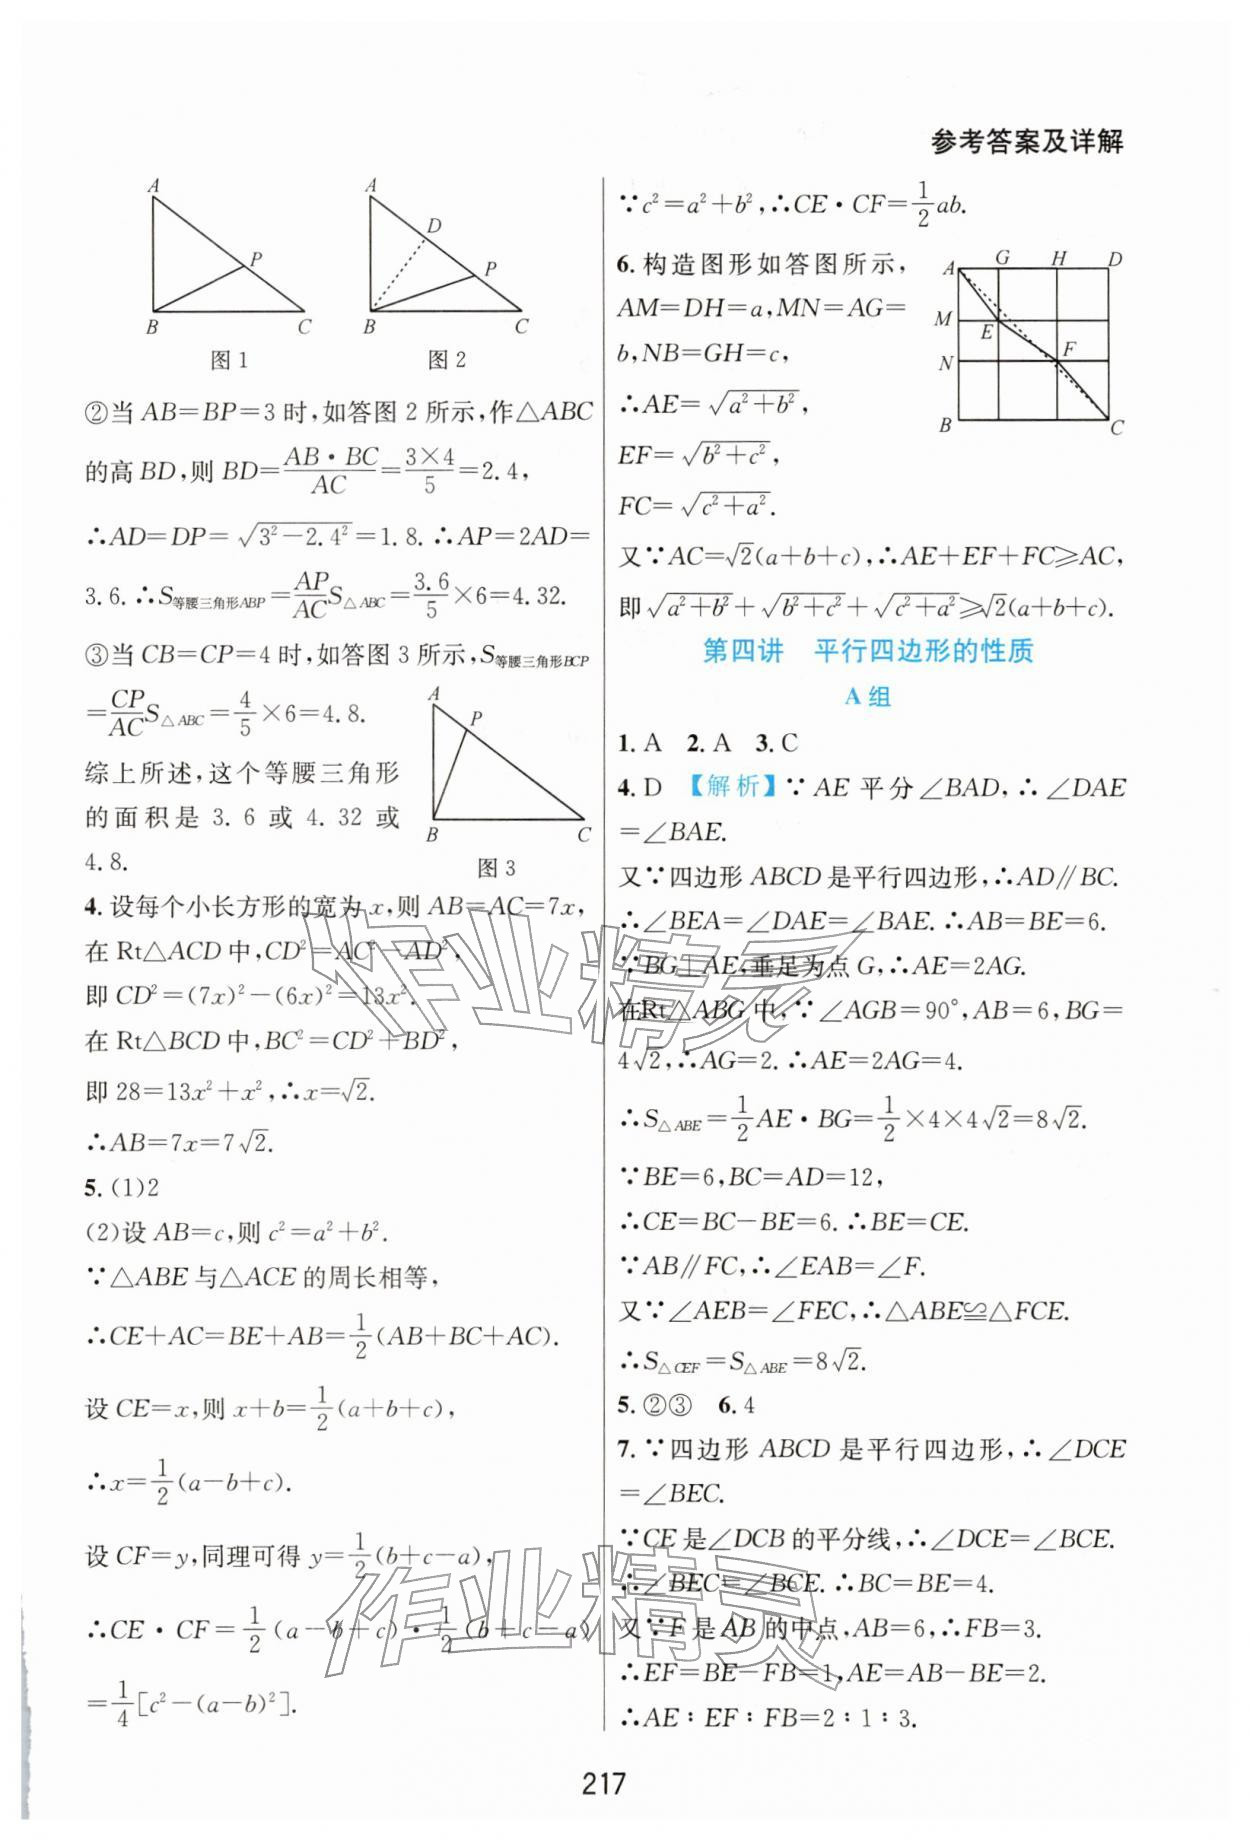 参考答案及详解
A
P
B
C
图1
A
D
P
B
C
图2
②当 AB=BP=3 时,如答图 2 所示,作△ABC
的高 BD,则 BD=\frac{AB·BC}{AC}=\frac{3×4}{5}=2.4,
∴AD=DP=\sqrt{3²-2.4²}=1.8.∴AP=2AD=
3.6.∴S等腰三角形ABP=\frac{AP}{AC}S△ABC=\frac{3.6}{5}×6=4.32.
③当 CB=CP=4 时,如答图 3 所示,S等腰三角形BCP
=\frac{CP}{AC}S△ABC=\frac{4}{5}×6=4.8.
综上所述,这个等腰三角形
的面积是 3.6 或 4.32 或
4.8.
A
P
B
C
图3
4.设每个小长方形的宽为 x,则 AB=AC=7x,
在 Rt△ACD 中,CD²=AC²-AD²,
即 CD²=(7x)²-(6x)²=13x².
在 Rt△BCD 中,BC²=CD²+BD²,
即 28=13x²+x²,∴x=\sqrt{2}.
∴AB=7x=7\sqrt{2}.
5.(1)2
(2)设 AB=c,则 c²=a²+b².
∵△ABE 与△ACE 的周长相等,
∴CE+AC=BE+AB=\frac{1}{2}(AB+BC+AC).
设 CE=x,则 x+b=\frac{1}{2}(a+b+c),
∴x=\frac{1}{2}(a-b+c).
设 CF=y,同理可得 y=\frac{1}{2}(b+c-a),
∴CE·CF=\frac{1}{2}(a-b+c)·\frac{1}{2}(b+c-a)
=\frac{1}{4}[c²-(a-b)²].
∵c²=a²+b²,∴CE·CF=\frac{1}{2}ab.
6.构造图形如答图所示,
AM=DH=a,MN=AG=
b,NB=GH=c,
∴AE=\sqrt{a²+b²},
EF=\sqrt{b²+c²},
FC=\sqrt{c²+a²}.
A
G
H
D
M
E
F
N
B
C
又∵AC=\sqrt{2}(a+b+c),∴AE+EF+FC≥AC,
即\sqrt{a²+b²}+\sqrt{b²+c²}+\sqrt{c²+a²}≥\sqrt{2}(a+b+c).
第四讲 平行四边形的性质
A 组
1.A 2.A 3.C
4.D 【解析】∵ AE 平分∠BAD,∴∠DAE
=∠BAE.
又∵四边形 ABCD 是平行四边形,∴AD∥BC.
∴∠BEA=∠DAE=∠BAE.∴AB=BE=6.
∵BG⊥AE,垂足为点 G,∴AE=2AG.
在Rt△ABG 中,∵∠AGB=90°,AB=6,BG=
4\sqrt{2},∴AG=2.∴AE=2AG=4.
∴S△ABE=\frac{1}{2}AE·BG=\frac{1}{2}×4×4\sqrt{2}=8\sqrt{2}.
∵BE=6,BC=AD=12,
∴CE=BC-BE=6.∴BE=CE.
∵AB∥FC,∴∠EAB=∠F.
又∵∠AEB=∠FEC,∴△ABE≌△FCE.
∴S△CEF=S△ABE=8\sqrt{2}.
5.②③ 6.4
7.∵四边形 ABCD 是平行四边形,∴∠DCE
=∠BEC.
∵CE 是∠DCB 的平分线,∴∠DCE=∠BCE.
∴∠BEC=∠BCE.∴BC=BE=4.
又∵F 是 AB 的中点,AB=6,∴FB=3.
∴EF=BE-FB=1,AE=AB-BE=2.
∴AE∶EF∶FB=2∶1∶3.
217
作业精灵
作业精灵